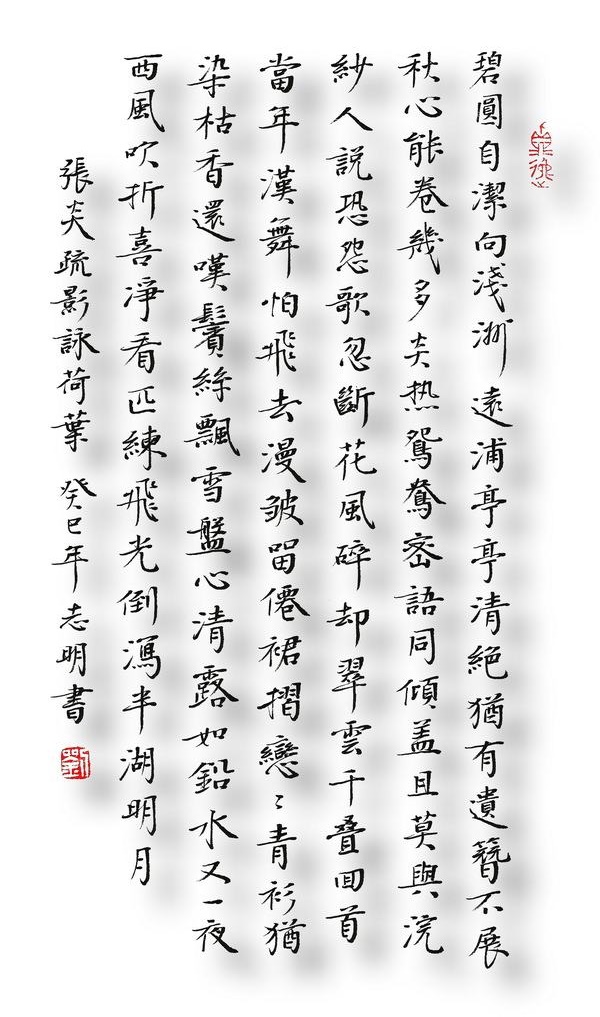 碧圓自潔向淺洲遠浦亭亭清絕猶有遺簪不展
秋心能卷幾多炎热鴛鴦密語同傾盖且莫與浣
紗人説恐怨歌忽斷花風碎却翠雲千叠回首
當年漢舞怕飛去漫皱留僊裙摺戀〻青衫猶
染枯香還嘆鬢絲飄雪盤心清露如鉛水又一夜
西風吹折喜淨看匹練飛光倒瀉半湖明月
張炎疏影詠荷葉 癸巳年志明書
劉